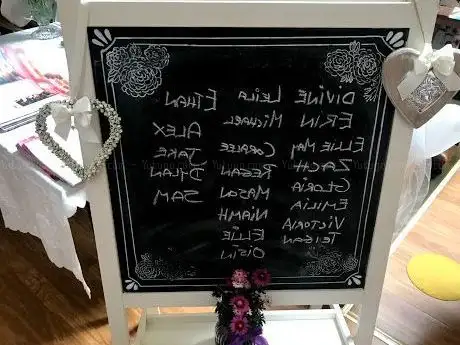 DIVINE
ERIN
ELLIE MAY
ZACH
GLORIA
EMILIA
VICTORIA
TEIGAN
LEILA
MICHAEL
CORALEE
REGAN
MASON
NIAMH
ELLIE
OISIN
ETHAN
ALEX
JAKE
DYLAN
SAM